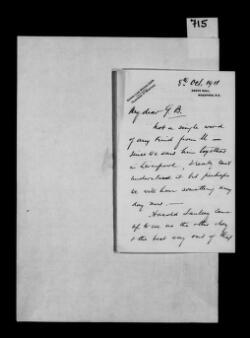 715
5th Oct. 1911
My dear G.B.
Not a single word
of any kind from M —
since we saw him together
in Liverpool, I really can't
understand it but perhaps
we will have something any
day now. —
Harold Sanderson came
up to see me the other day
& the best way out of that